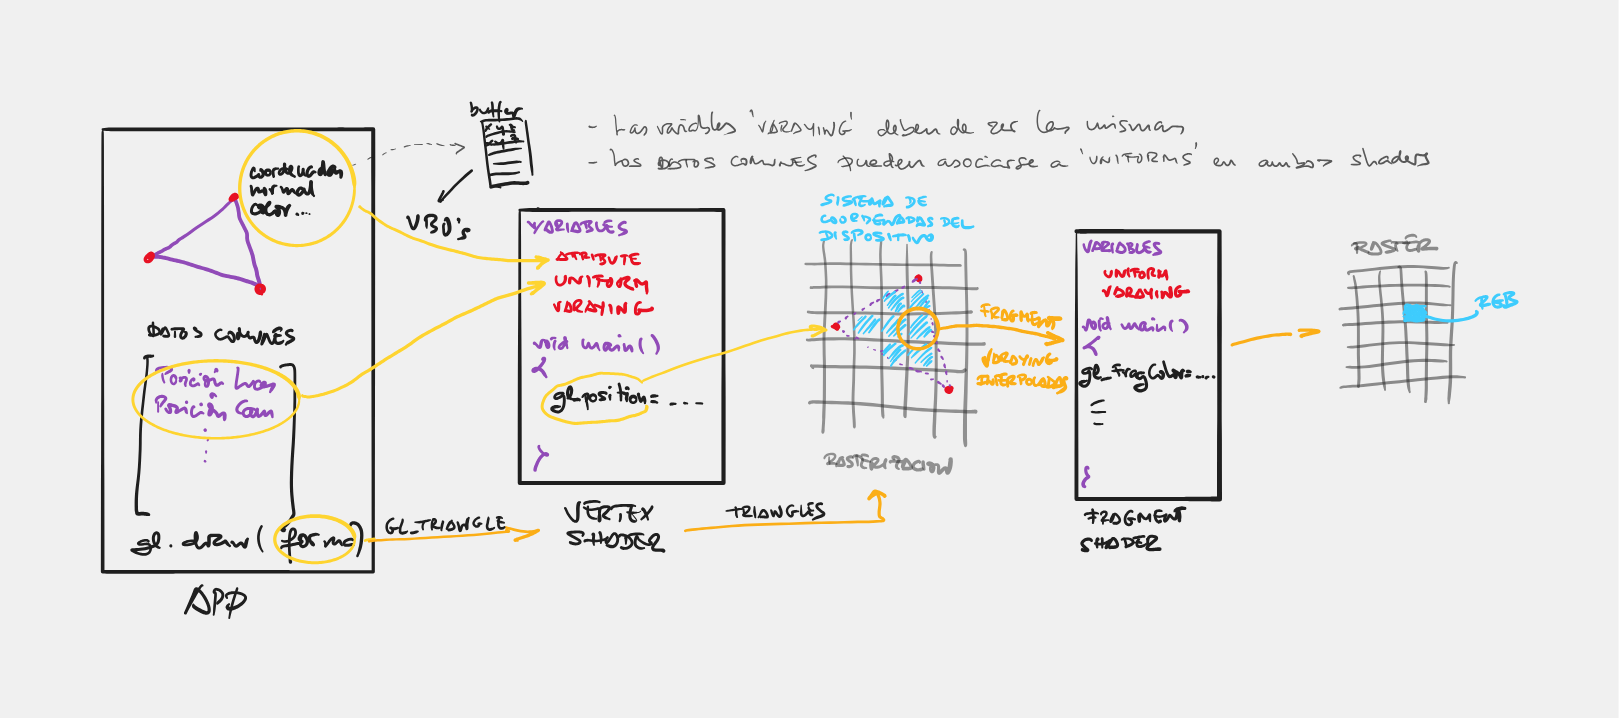 buffer
- Las variables 'VARAYING' deben de ser las mismas
- Los DATOS COMUNES pueden asociarse a 'UNIFORMS' en ambos shaders
coordenadas
normal
color...
VBO's
DATOS COMUNES
Posición luces
Posición Cam
gl.draw(forma)
APP
GL_TRIANGLE
VARIABLES
ATRIBUTE
UNIFORM
VARAYING
void main()
{
gl_position= ....
}
VERTEX
SHADER
TRIANGLES
SISTEMA DE
COORDENADAS DEL
DISPOSITIVO
RASTERIZACION
FRAGMENT
VARAYING
INTERPOLADAS
VARIABLES
UNIFORM
VARAYING
void main()
{
gl_FragColor=....
}
FRAGMENT
SHADER
RASTER
RGB